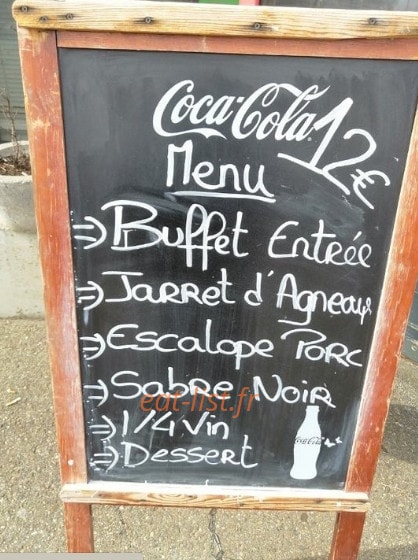 Coca-Cola 12€
Menu
=> Buffet Entrée
=> Jarret d'Agneau
=> Escalope Porc
=> Sabre Noir
eat-list.fr
=> 1/4 Vin
=> Dessert
Coca-Cola